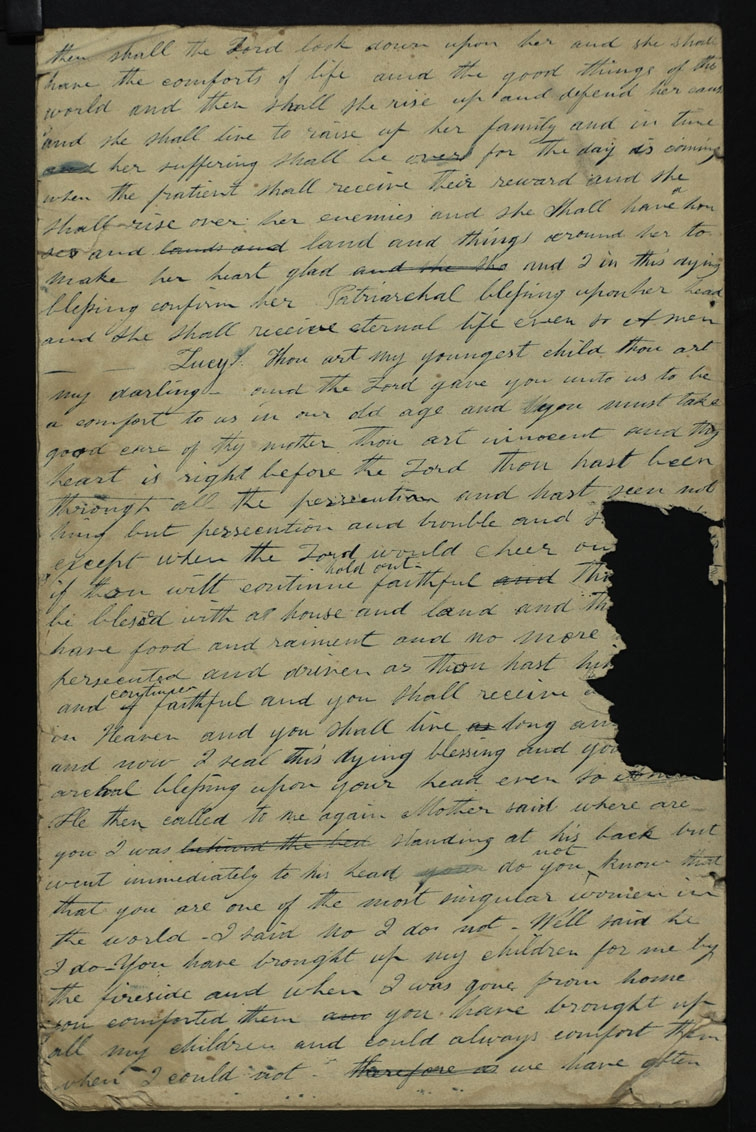 then shall the Lord look down upon her and she shall
have the comforts of life amd the good things of the
world and then shall she rise up and defend her caus
and she shall live to raise up her family and in time
and her suffering shall be over for the day is coming
when the pratient shall receive their reward and she
shall rise over her enemies and she shall have hou
ses and lands and land and things around her to
make her heart glad and she sho and I in this dying
blessing confirm her Patriarchal blessing upon her head
and she shall receive eternal life even so Amen
Lucy! Thou art my youngest child thou art
my darling- and the Lord gave you unto us to be
a comfort to us in our old age and you must take
good care of thy mother thou art innocent and thy
heart is right before the Lord thou hast been
through all the persecution and hast seen not
hing but persecution and trouble and
except when the Lord would cheer ou
if thou wilt continue hold out faithful and tho
be blessed with a house and land and th
have food and raiment and no more
persecuted and driven as thou hast hi
and if continue faithful and you shall receive
in Heaven and you shall live as long
and now I seal this dying blessing and you
archal blessing upon your head even so Amen
He then called to me again Mother said where are
you I was behind the bed standing at his back but
went immediately to his head do you not know that
that you are one of the most singular women in
the world - I said no I do not - Will said he
I do - You have brought up my children for me by
the fireside and when I was gone from home
you comforted them and you have brought up
all my children and could always comfort them
when I could not - therefore as we have often